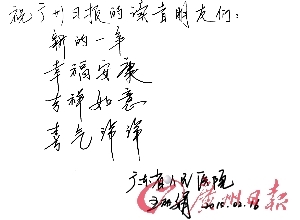 祝广州日报的读者朋友们：
新的一年
幸福安康
吉祥如意
喜气洋洋
广东省人民医院
2010.02.16
广州日报